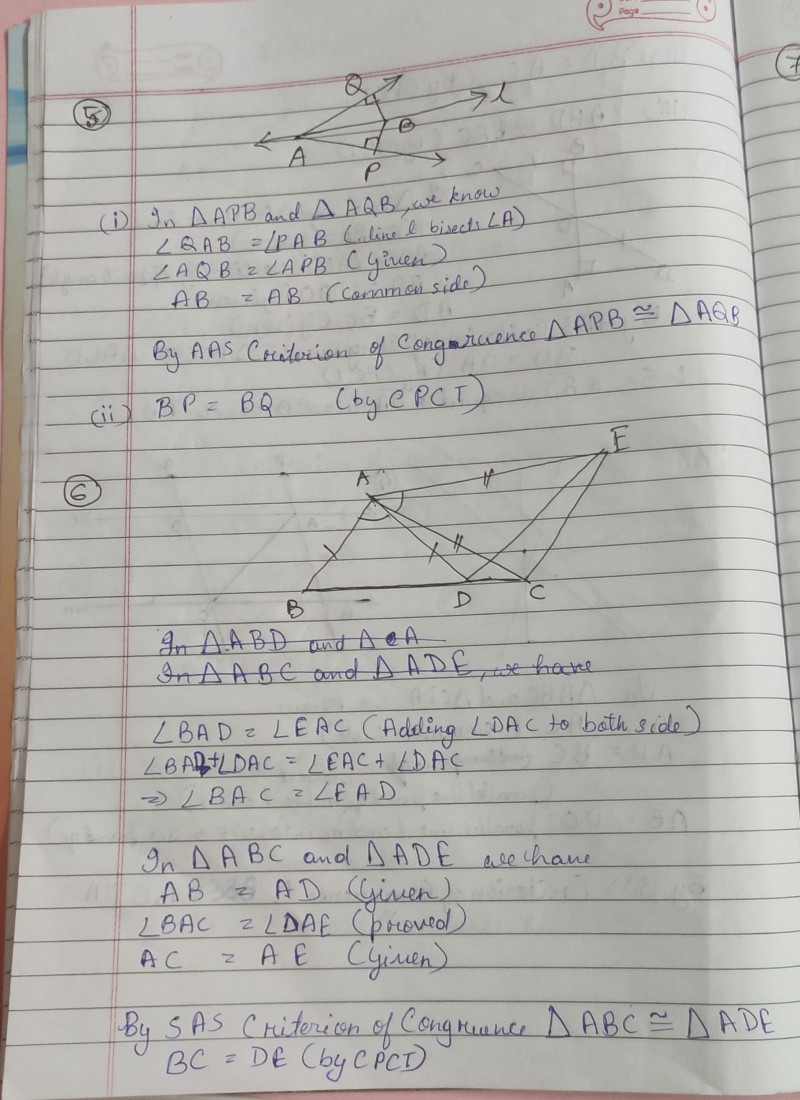 Page
7
5
Q
l
B
A
P
(i) In △APB and △AQB, we know
∠QAB = ∠PAB (∵ line l bisects ∠A)
∠AQB = ∠APB (Given)
AB = AB (Common side)
By AAS Criterion of Congruence △APB ≅ △AQB
(ii) BP = BQ (by CPCT)
6
E
A
B D C
In △ABD and △eA
In △ABC and △ADE, we have
∠BAD = ∠EAC (Adding ∠DAC to both side)
∠BAD+∠DAC = ∠EAC + ∠DAC
⇒ ∠BAC = ∠EAD
In △ABC and △ADE we have
AB = AD (Given)
∠BAC = ∠DAE (proved)
AC = AE (Given)
By SAS Criterion of Congruence △ABC ≅ △ADE
BC = DE (by CPCT)